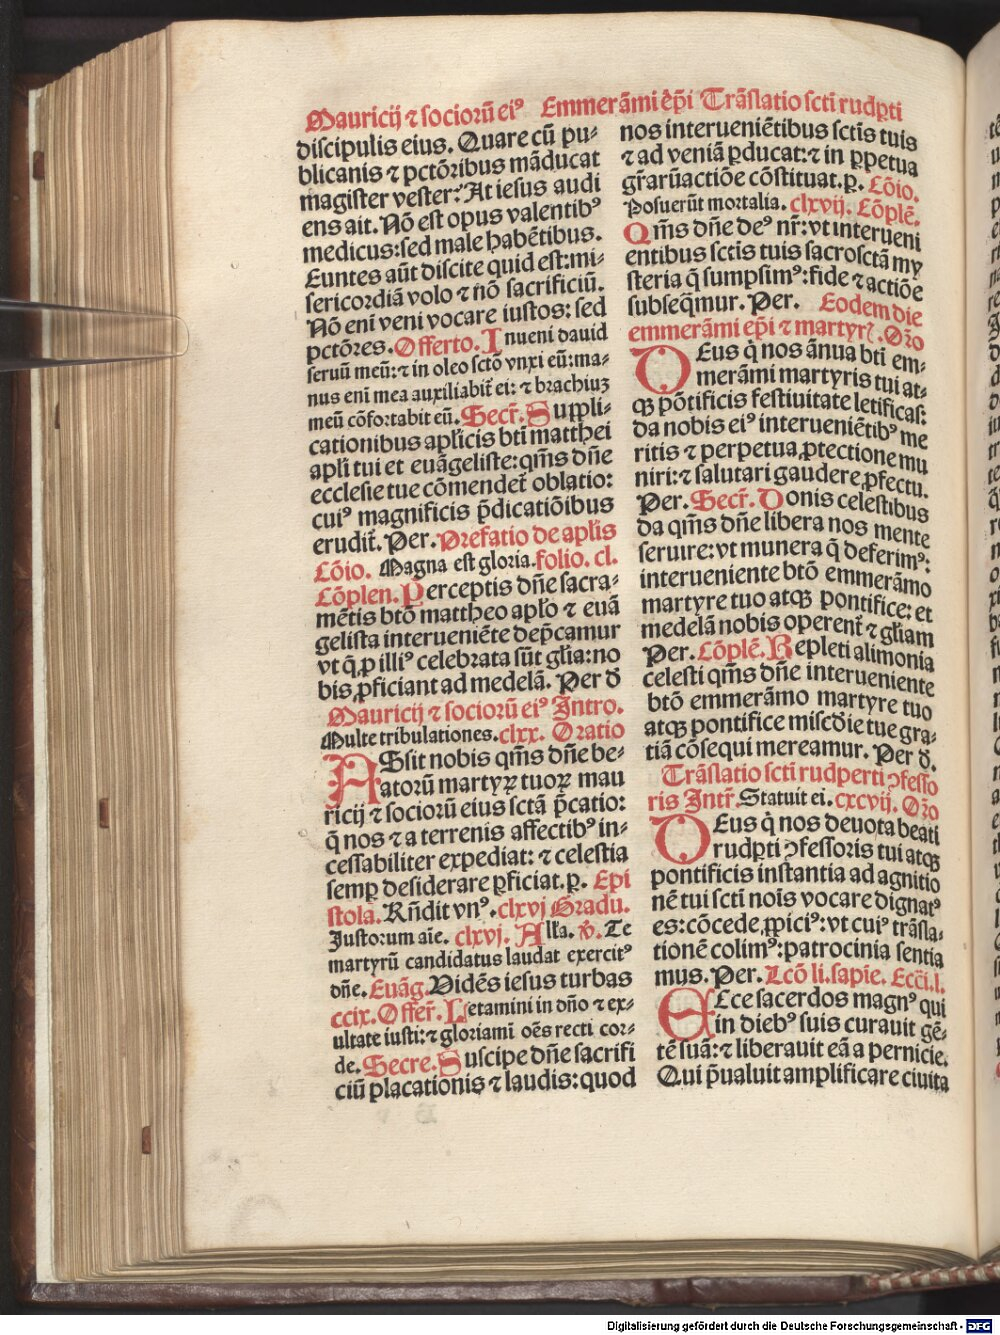 Mauricij ⁊ sociorū eiꝰ Emmerāmi ēpi Trāslatio scti rudꝑti
discipulis eius. Quare cū pu-
blicanis ⁊ pctōribus māducat
magister vester: At iesus audi
ens ait. Nō est opus valentibꝰ
medicus: sed male habētibus.
Euntes aūt discite quid est: mi-
sericordiā volo ⁊ nō sacrificiū.
Nō enī veni vocare iustos: sed
pctōres. Offerto. Inueni dauid
seruū meū: ⁊ in oleo sctō vnxi eū: ma-
nus enī mea auxiliabit̄ ei: ⁊ brachiuꝫ
meū cōfortabit eū. Secr̄. Suppli-
cationibus apl̄icis btī matthei
apl̄i tui et euāgeliste: qm̄s dn̄e
ecclesie tue cōmendet̄ oblatio:
cuiꝰ magnificis p̄dicatiōibus
erudit̄. Per. Prefatio de apl̄is
Cōio. Magna est gloria. folio. cl.
Cōplen. Perceptis dn̄e sacra-
mētis btō mattheo apl̄o ⁊ euā
gelista interueniēte dep̄camur
vt q̄ ꝓ illiꝰ celebrata sūt gl̄ia: no
bis ꝓficiant ad medelā. Per d̄
Mauricij ⁊ sociorū eiꝰ Intro.
Multe tribulationes. clxx. Oratio
ASsit nobis qm̄s dn̄e be-
atorū martyrꝝ tuorꝝ mau
ricij ⁊ sociorū eius sctā p̄catio:
q̄ nos ⁊ a terrenis affectibꝰ in-
cessabiliter expediat: ⁊ celestia
semꝑ desiderare ꝑficiat. p. Epi
stola. Rn̄dit vnꝰ. clxvj Gradu.
Iustorum aīe. clxvj. All̄a. v̄. Te
martyrū candidatus laudat exercitꝰ
dn̄e. Euāg. Vidēs iesus turbas
ccix. Offer̄. Letamini in dn̄o ⁊ ex-
ultate iusti: ⁊ gloriamī oēs recti cor-
de. Secre. Suscipe dn̄e sacrifi
ciū placationis ⁊ laudis: quod
nos interueniētibus sctīs tuis
⁊ ad veniā ꝑducat: ⁊ in ꝑpetua
gr̄arū actiōe cōstituat. p. Cōio.
Posuerūt mortalia. clxvij. Cōplē.
Qm̄s dn̄e deꝰ nr̄: vt interueni
entibus sctīs tuis sacrosctā my
steria q̄ sumpsimꝰ: fide ⁊ actiōe
subseq̄mur. Per. Eodem die
emmerāmi ep̄i ⁊ martyr̄. Oro
DEus q̄ nos ānua btī em-
merāmi martyris tui at-
qꝫ pōtificis festiuitate letificas:
da nobis eiꝰ interueniētibꝰ me
ritis ⁊ perpetua ꝓtectione mu
niri: ⁊ salutari gaudere ꝓfectu.
Per. Secr̄. Donis celestibus
da qm̄s dn̄e libera nos mente
seruire: vt munera q̄ deferimꝰ:
interueniente btō emmerāmo
martyre tuo atqꝫ pontifice: et
medelā nobis operent̄ ⁊ gl̄iam
Per. Cōplē. Repleti alimonia
celesti qm̄s dn̄e interueniente
btō emmerāmo martyre tuo
atqꝫ pontifice misc̄die tue gra-
tiā cōsequi mereamur. Per d̄.
Trāslatio scti rudperti ꝯfesso
ris Intr̄. Statuit ei. cxcvij. Oro
DEus q̄ nos deuota beati
rudꝑti ꝯfessoris tui atqꝫ
pontificis instantia ad agnitio
nē tui scti noīs vocare dignatꝰ
es: cōcede ꝓpiciꝰ: vt cuiꝰ trāsla-
tionē colimꝰ: patrocinia sentia
mus. Per. Lcō li. sapīe. Ecc̄i. l.
ECce sacerdos magnꝰ qui
in diebꝰ suis curauit gē-
tē suā: ⁊ liberauit eā a pernicie.
Qui p̄ualuit amplificare ciuita
Digitalisierung gefördert durch die Deutsche Forschungsgemeinschaft - DFG